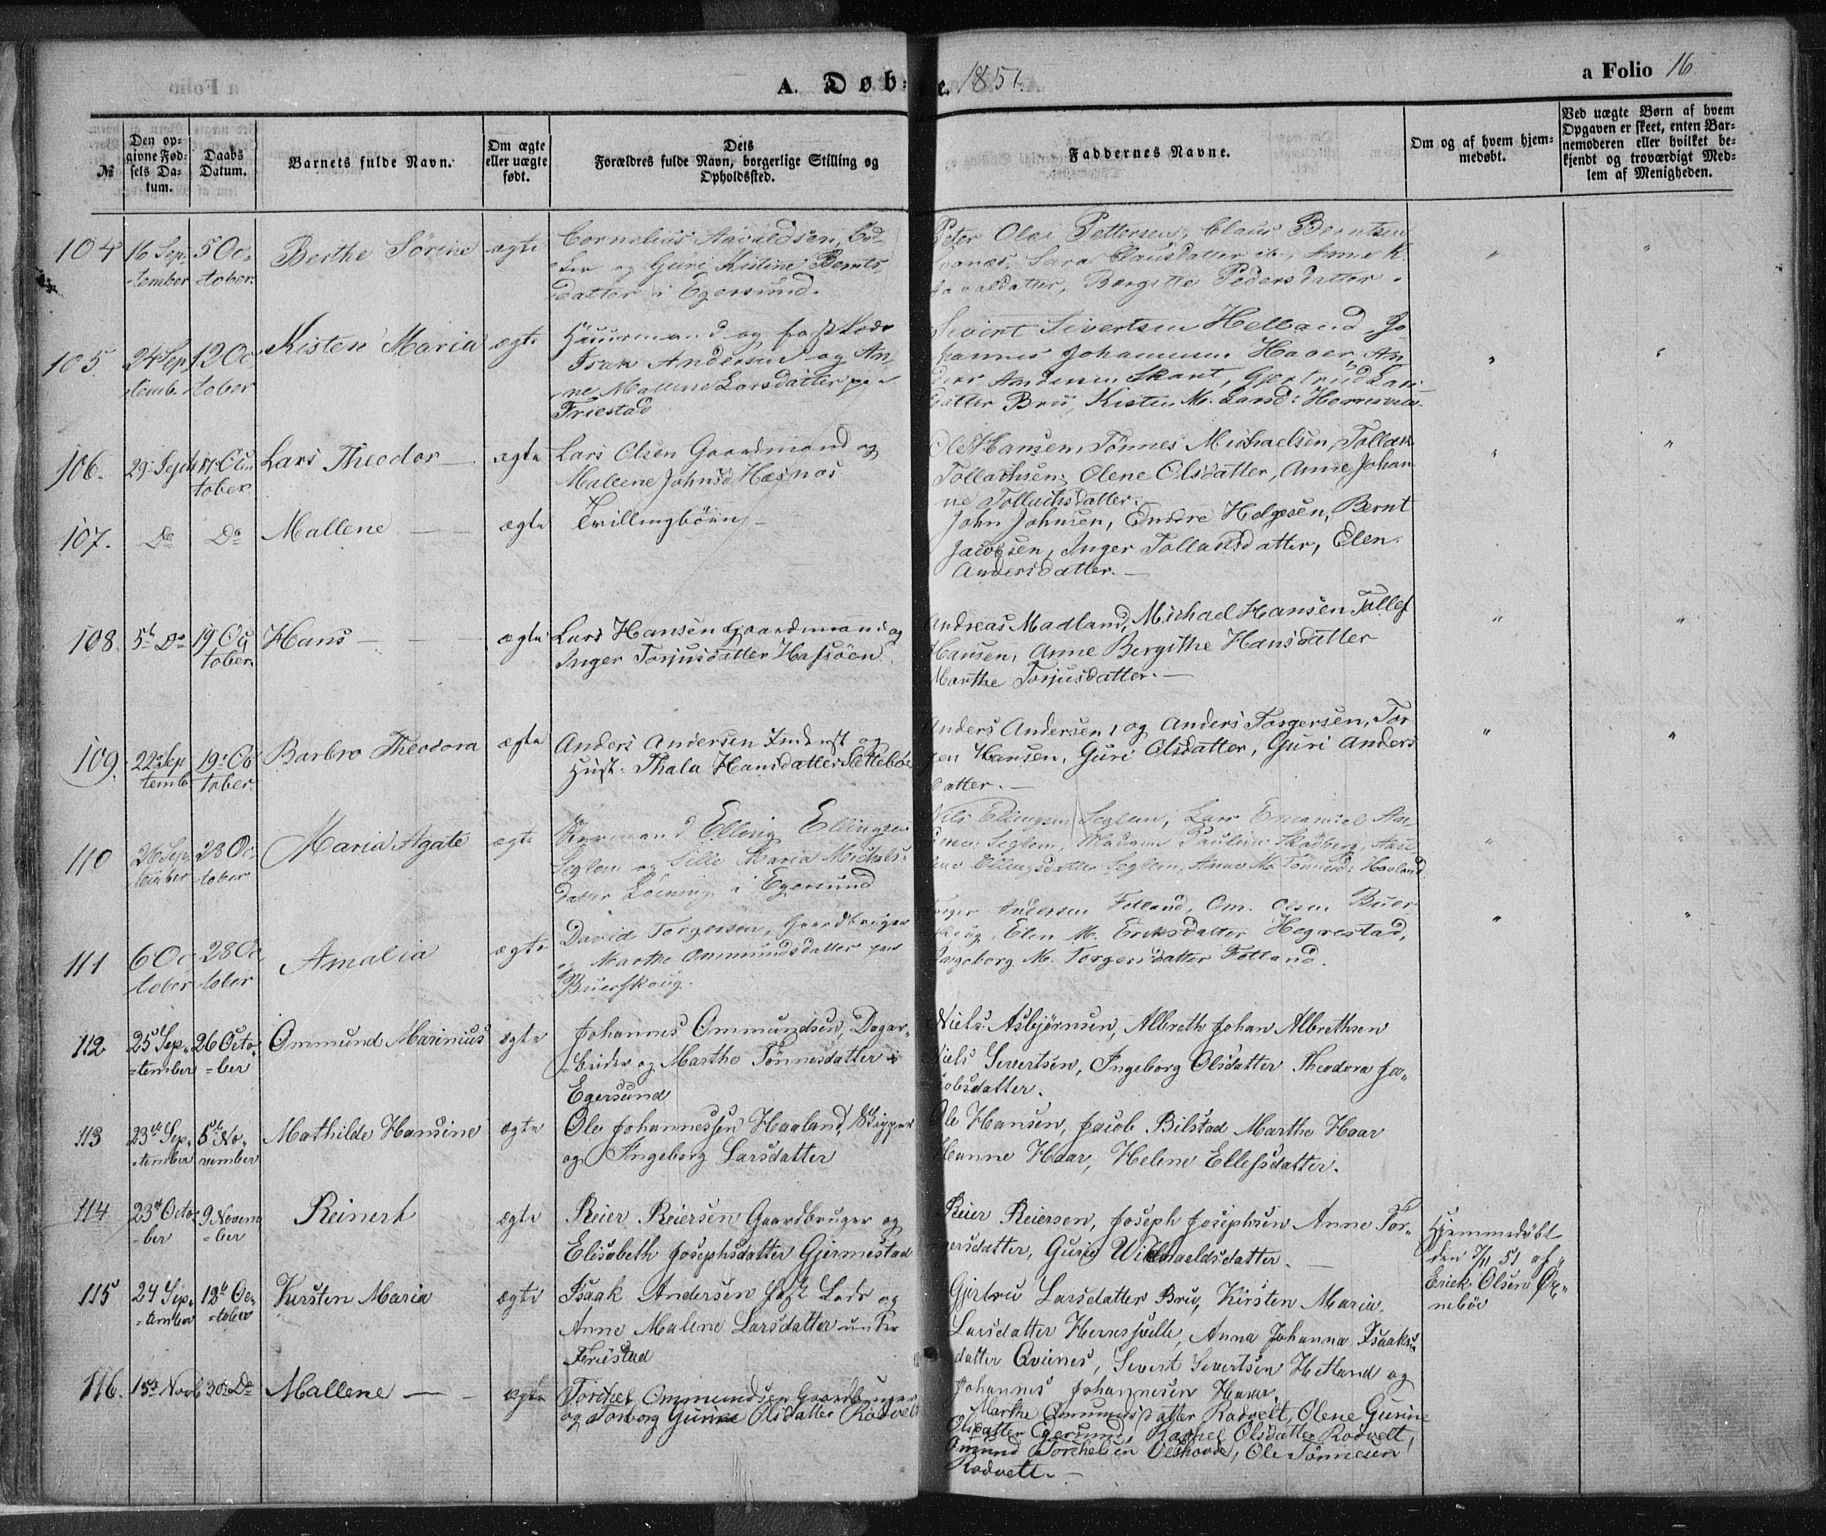 A. Døbte. 1851.
a Folio 16.
№
Den opgivne Fødsels Datum.
Daabs Datum.
Barnets fulde Navn.
Om ægte eller uægte født.
Dets Forældres fulde Navn, borgerlige Stilling og Opholdssted.
Faddernes Navne.
Om og af hvem hjemmedøbt.
Ved uægte Børn af hvem Opgaven er skeet, enten Barnemoderen eller hvilket bekjendt og troværdigt Medlem af Menigheden.
104
16 Sep-
-tember
5 Oc-
-tober.
Berthe Sörine
ægte
Cornelius Aavaldsen,
og Guri Kistine Bernts
datter i Egersund.
Peter Olai Pettersen, Claus Berntsen
Sara Clausdatter Anne K.
Bergitte Pedersdatter.
105.
24 Sep
-temb.
12 Oc
tober
Kisten Maria
ægte
Huusmand og
Isak Andersen og An-
ne Mallene Larsdatter paa
Friestad
Sivert Sivertsen Helland, Jo
hannes Johannessen Haaer, An
ders Andersen Skaut, Gjertrud Lars
datter Bru, Kisten M. Larsd:
106.
29. Sept
17. Oc
tober.
Lars Theodor
ægte
Lars Olsen Gaardmand og
Mallene Johnsd Hæsnes
Ole Hansen, Tönnes Michaelsen, Tollak
Tollachsen, Olene Olsdatter, Anne Johan
ne Tollachsdatter.
107.
Do
Do
Mallene
ægte
Tvillingbörn
John Johnsen, Endre Helgesen, Bernt
Jacobsen, Inger Tollachsdatter, Elen
Andersdatter.
108.
5t Do
19 Oc
tober.
Hans
ægte
Lars Hansen Gaardmand og
Inger Torjusdatter Hafsöen
Andreas Madland, Michael Hansen Tollef
Hansen, Anne Bergithe Hansdatter
Marthe Torjusdatter.
109.
22 Sep
temb.
19. Oc
tober.
Barbro Theodora
ægte
Anders Andersen Inderst og
Hust. Thala Hansdatter Sletteböe
Anders Andersen, og Anders Torgersen, Tor
gen Hansen, Guri Olsdatter, Guri Anders
datter.
110
26 Sep-
tember
28 Oc
tober
Maria Agate
ægte
Elling Ellingsen
Seglem og Sille Maria Michals-
datter i Egersund
Nils Ellingsen Seglem, Lars Emanuel An-
dersen Seglem, Madam Pauline Skadberg,
Ellingsdatter Seglem, Anne M. Tönnesd: Hovland
111
6 Oc
tober
28 Oc
tober
Amalia
ægte
David Torgersen, Gaardbruger
og Marthe Ommundsdatter paa
Buerskoug.
Torger Andersen Fotland, Om. Olsen Buer
skoug, Elen M. Eriksdatter Hegrestad,
Ingeborg M. Torgersdatter Fotland.
112
25 Sep-
-tember
26 Octo-
-ber
Ommund Marinius
ægte
Johannes Ommundsen, Dagar-
-beider og Marthe Tönnesdatter i
Egersund
Niels Asbjörnsen, Albreth Johan Albrethsen
Niels Sivertsen, Ingeborg Olsdatter Theodora Ja-
kobsdatter.
113
23de Sep-
-tember
5te No-
vember
Mathilde Hansine
ægte
Ole Johannessen Haaland, Skipper
og Ingeborg Larsdatter
Ole Hansen, Jacob Bilstad Marthe Haar
Hanne Haar, Helene Ellefsdatter.
114
23de Octo-
-ber
9 Novem
-ber
Reinert
ægte
Reier Reiersen Gaardbruger og
Elisabeth Josephsdatter Gjermestad
Reier Reiersen, Joseph Josephsen Anne Tor-
gersdatter, Guri
Hjemmedöbt
den 7/11 51 af
Erick Olsen
115
24 Sep-
-tember
12te Oc-
-tober
Kirsten Maria
ægte
Isaak Andersen og
Anne Malene Larsdatter under
Friestad
Gjertru Larsdatter Bru, Kirsten Maria
Larsdatter Anna Johanna Isaaks-
datter Qvines, Sivert Sivertsen Hetland og
Johannes Johannesen Haar.
116.
15de Novb
30te Do
Mallene
ægte
Torchel Ommundsen Gaardbruger
og Torborg Gurine Olsdatter Rodvelt
Marthe Omundsdatter Rodvelt, Olene Gurine
Olsdatter Egersund, Rachel Olsdatter Rodvelt,
Omund Torchelsen Ole Tönnesen
Rodvelt.